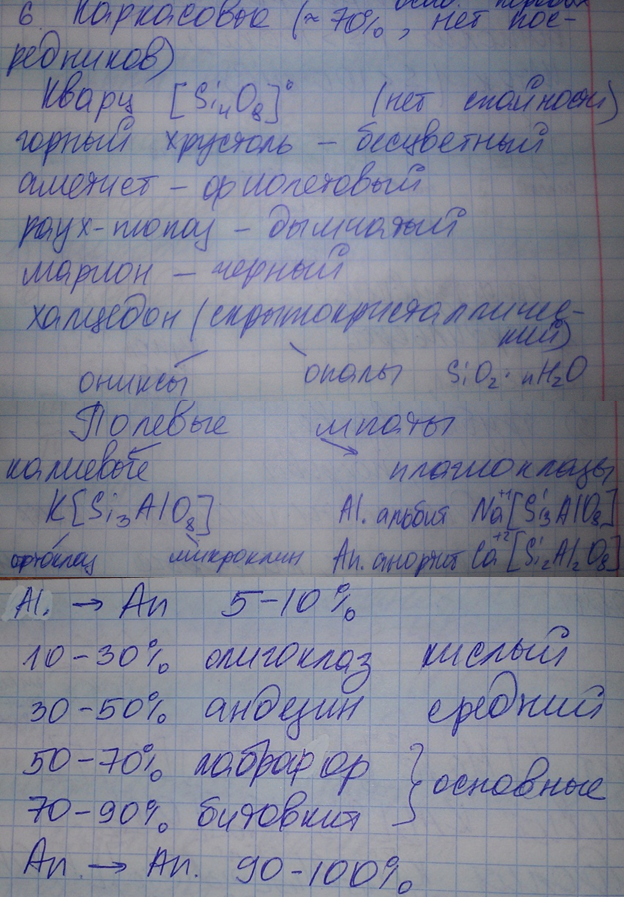 6 Каркасовые (≈ 70%, нет пос-
редников)
Кварц [Si4O8]° (нет спайности)
горный хрусталь – бесцветный
аметист – фиолетовый
раух-топаз – дымчатый
марион – черный
халцедон (скрытокристалличес-
кий)
ониксы опалы SiO2 · nH2O
Полевые шпаты
калиевые плагиоклазы
K[Si3AlO8] Al. альбит Na+1[Si3AlO8]
ортоклаз микроклин An. анортит Ca+2[Si2Al2O8]
Al. → An 5–10%
10–30% олигоклаз кислый
30–50% андезин средний
50–70% лабрадор } основные
70–90% битовнит
An → An. 90–100%